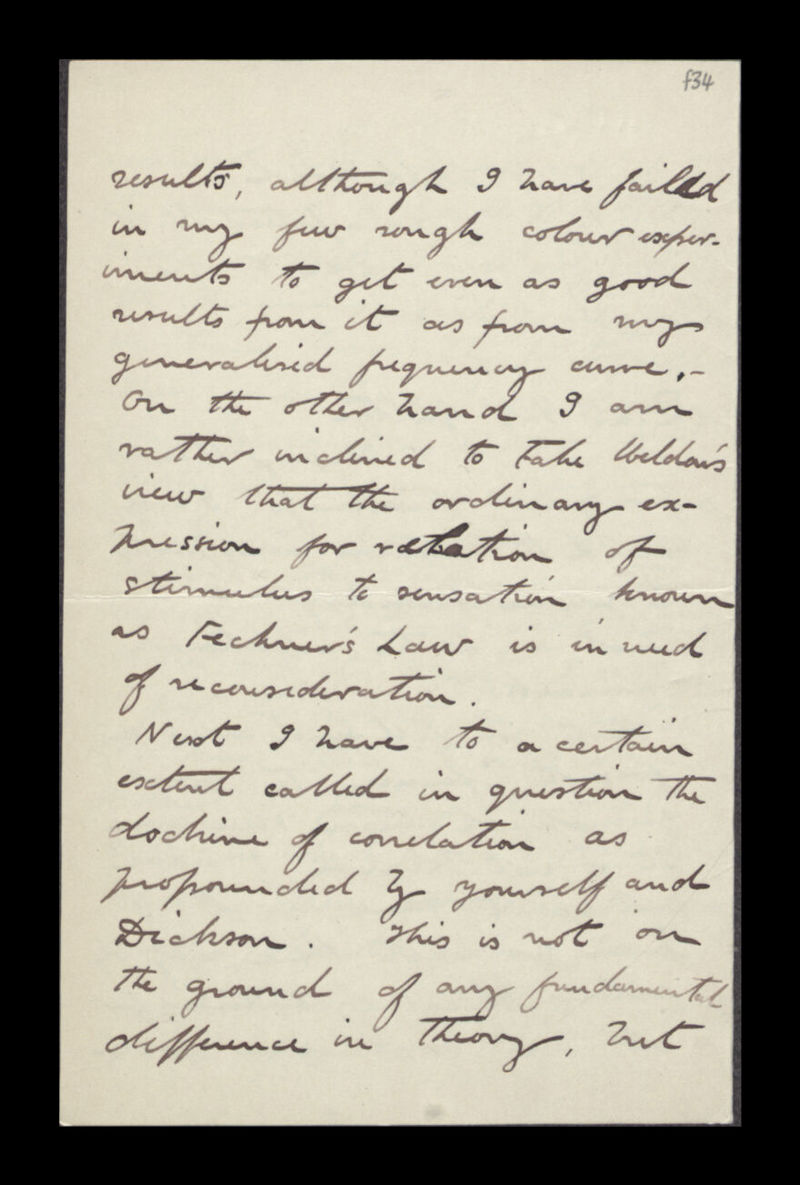 f34
results, although I have failed
in my few rough colour exper-
iments to get even as good
results from it as from my
generalised frequency curve.-
On the other hand I am
rather inclined to take Weldon's
view that the ordinary ex-
pression for relation of
stimulus to sensation known
as Fechner's Law is in need
of reconsideration.
Next I have to a certain
extent called in question the
doctrine of correlation as
propounded by yourself and
Dickson. This is not on
the ground of any fundamental
difference in theory, but